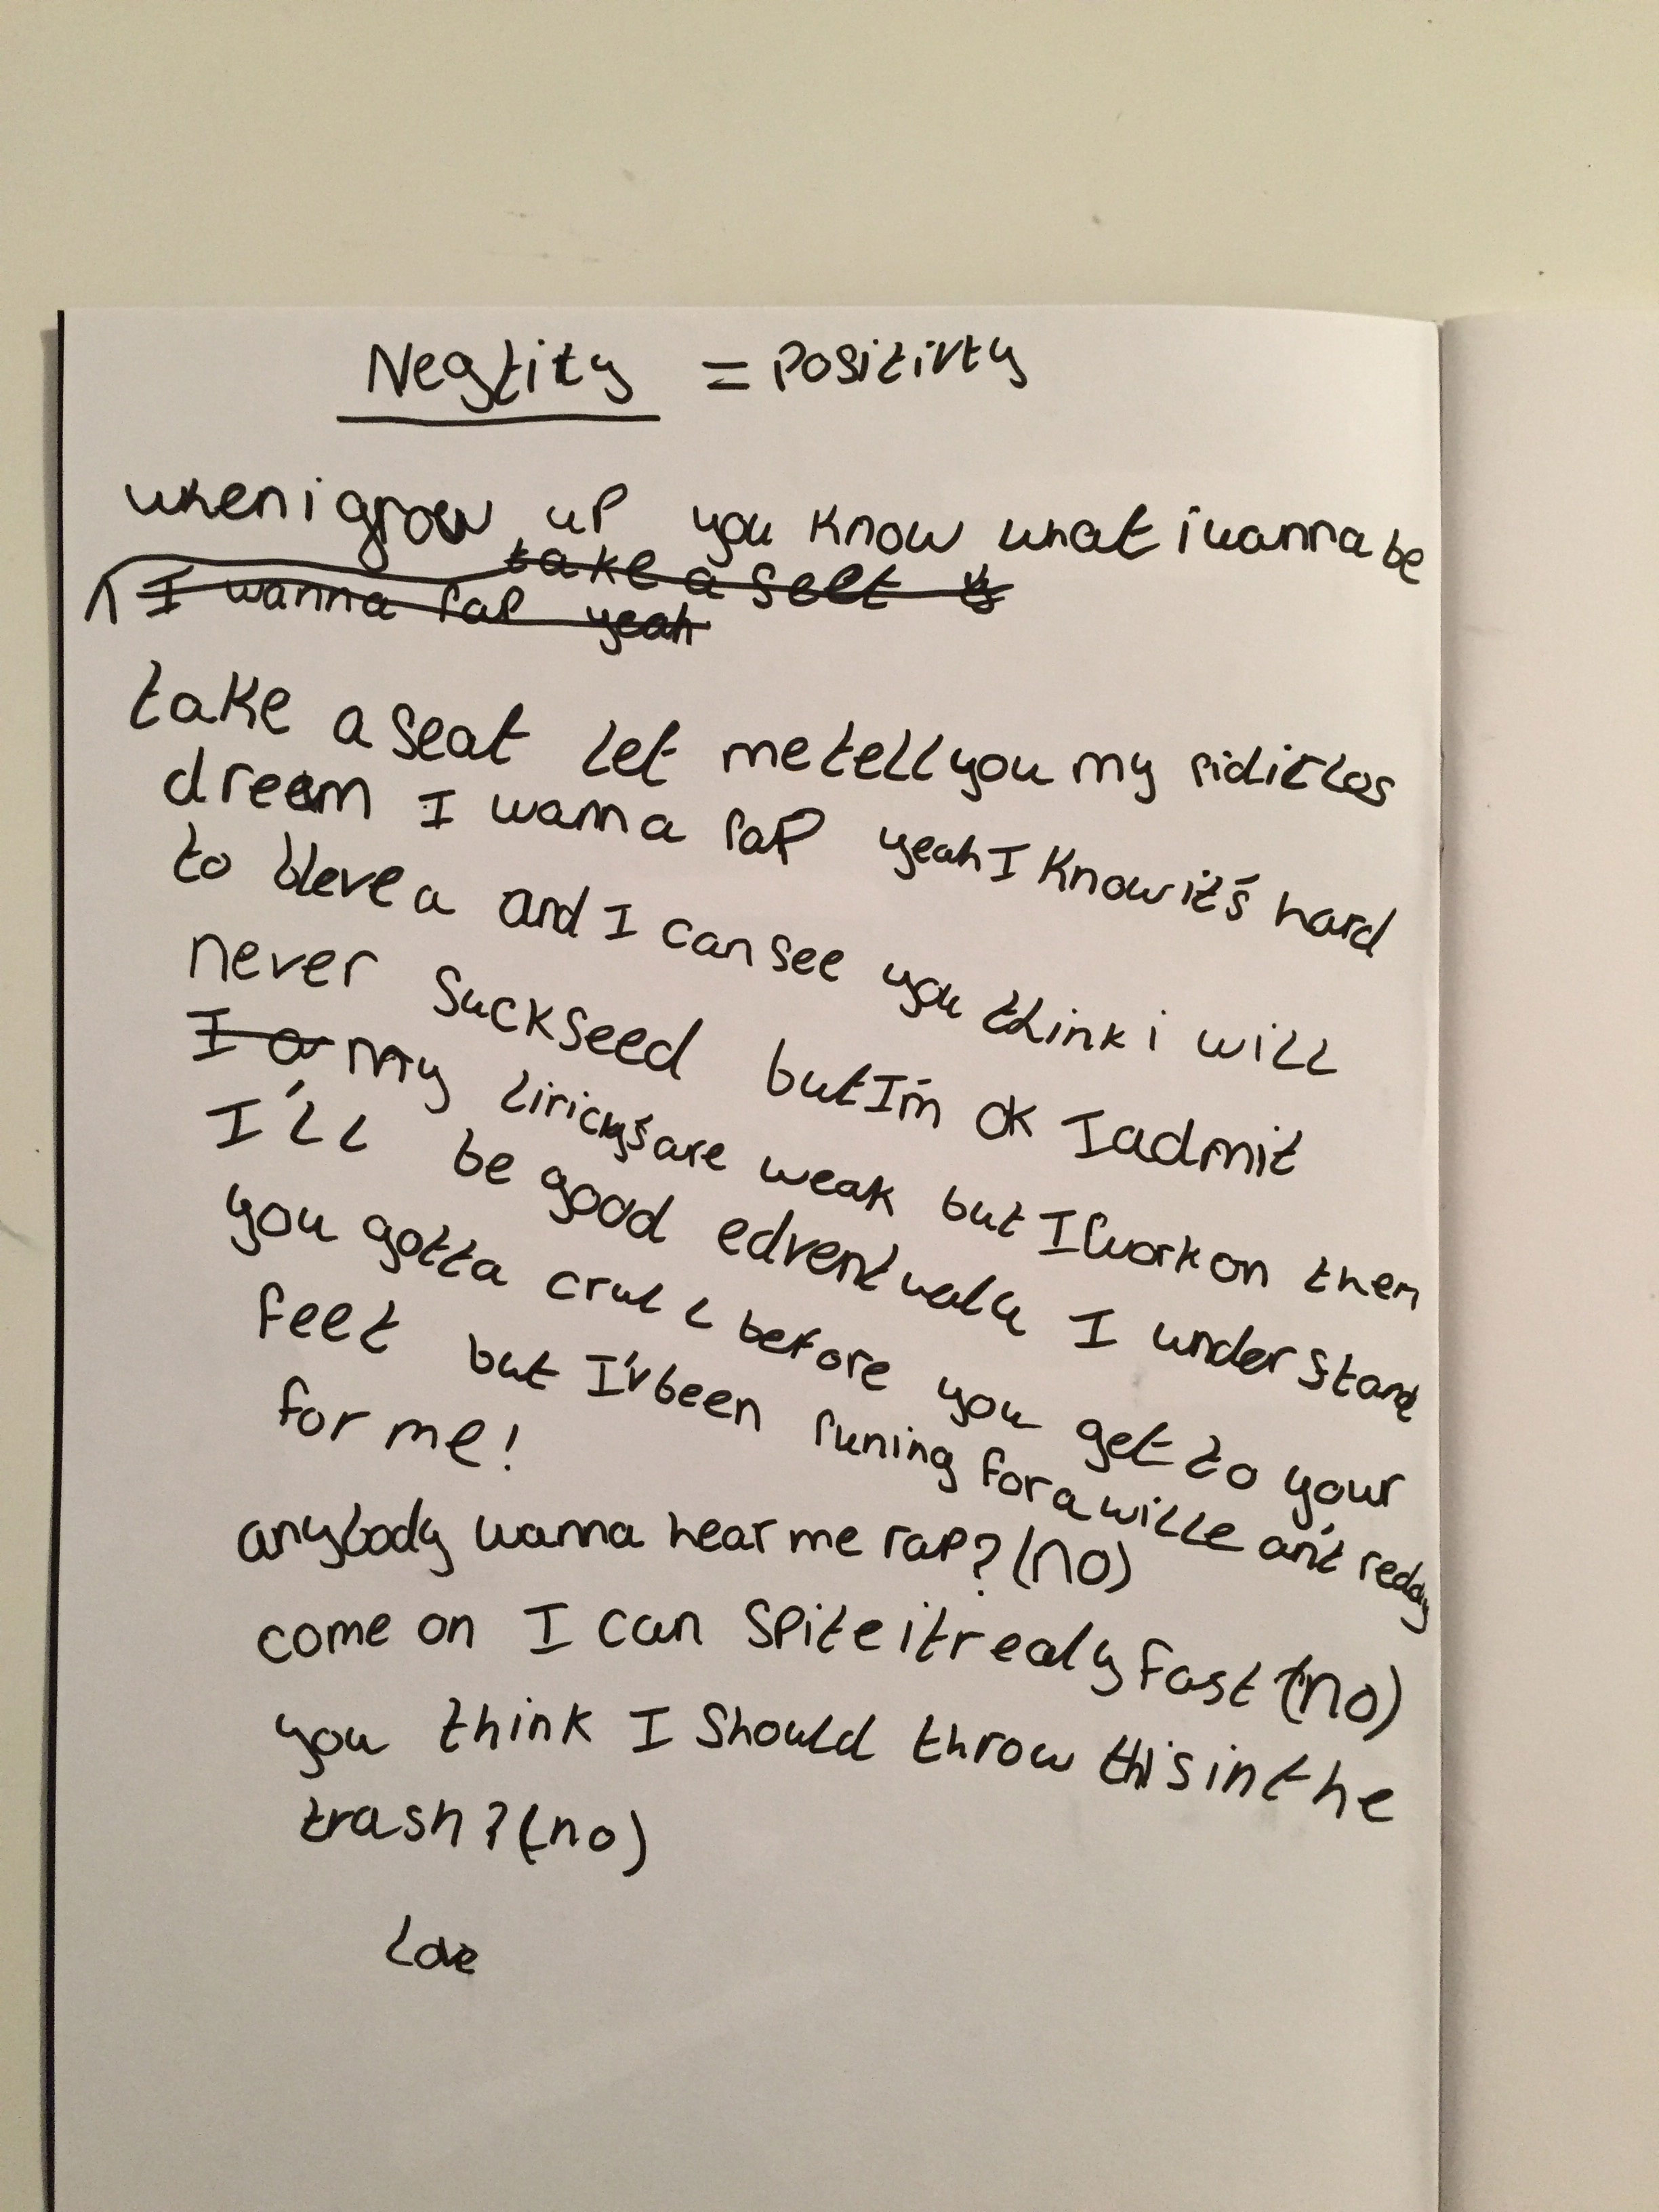 Negtity = Positivty
when i grow up you know what i wanna be
take a seet
I wanna rap yeah
take a seat let me tell you my ridiclos
dream I wanna rap yeah I know it's hard
to bleve a and I can see you think i will
never suckseed but I'm ok I admit
I a my liricys are weak but I work on them
I'll be good edventualy I understand
you gotta crul before you get to your
feet but I'v been runing for a wille ain't reday
for me!
anybody wanna hear me rap? (no)
come on I can spite it realy fast (no)
you think I should throw this in the
trash? (no)
Love